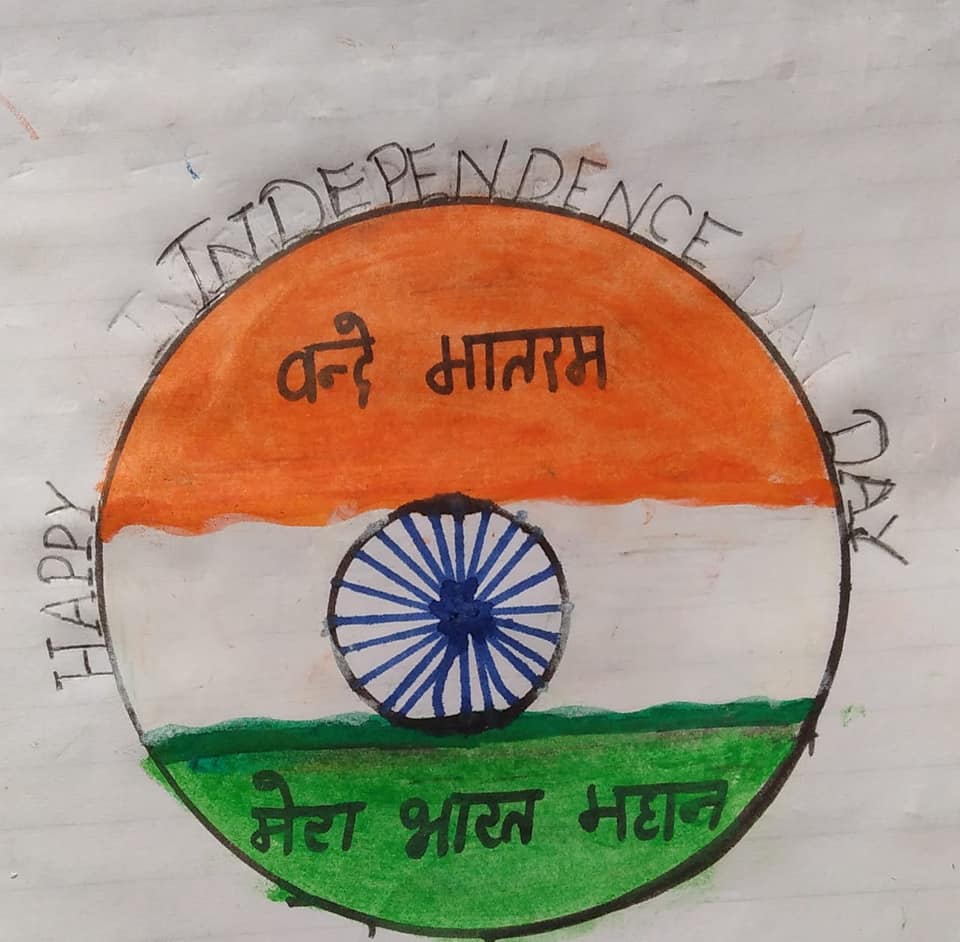 HAPPY INDEPENDENCE DAY
वन्दे मातरम
मेरा भारत महान